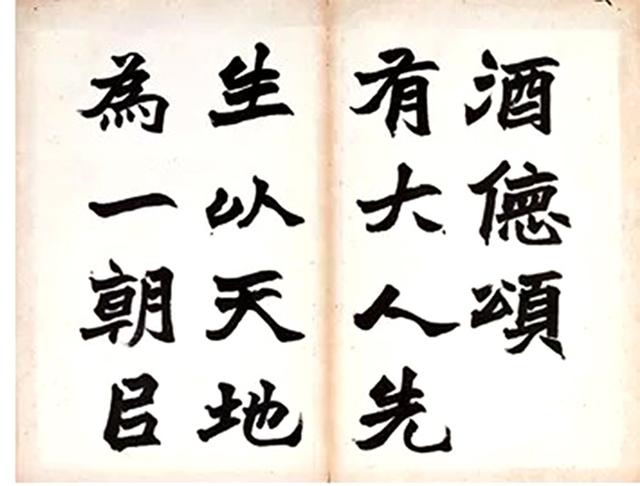 酒德頌
有大人先
生以天地
為一朝㠯